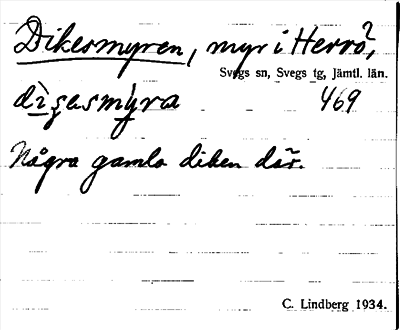 Dikesmyren, myr i Herrö?,
Svegs sn, Svegs tg, Jämtl. län.
469
Några gamla diken där.
C. Lindberg 1934.